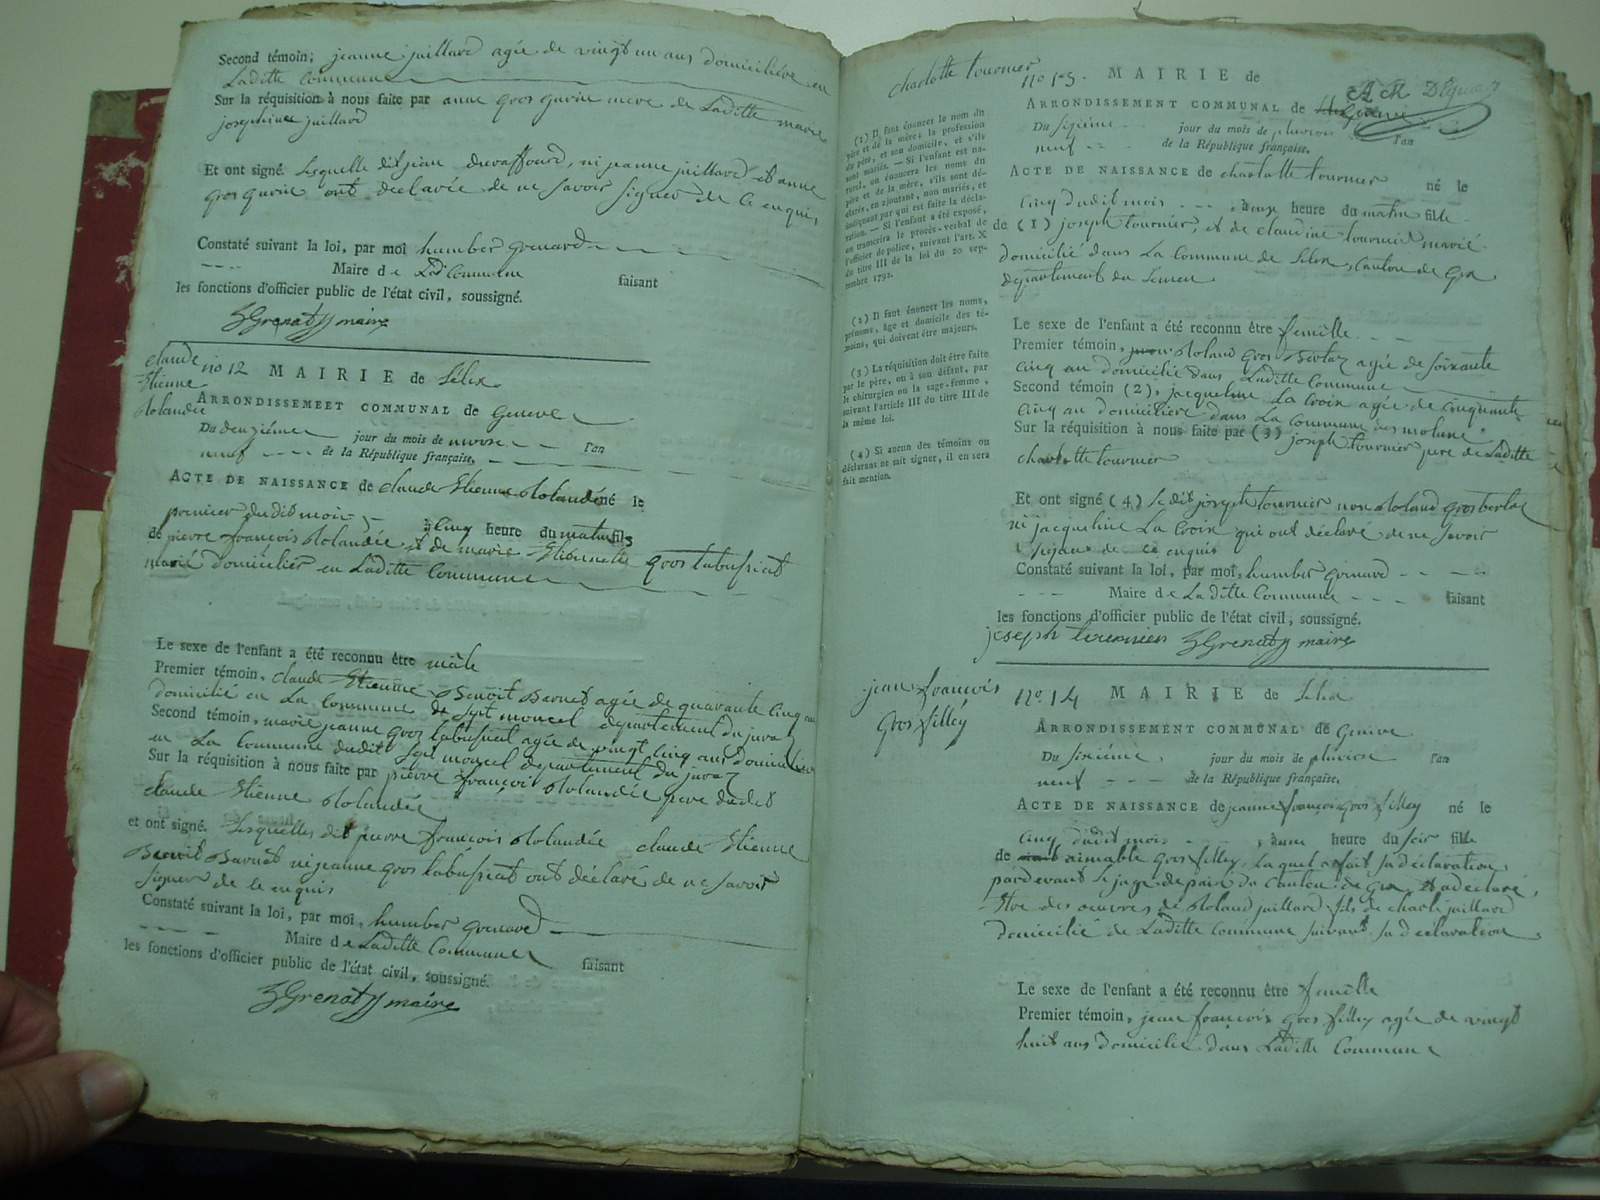 Second témoin; jeanne juillard agée de vingt un ans domiciliée en
Laditte Commune
Sur la réquisition à nous faite par anne gros gurin mere de Laditte marie
josephinee juillard
Et ont signé. Lesquelle dit jean ni jeanne juillard et anne
gros gurin ont declarée de ne savoir signer de ce enquis
Constaté suivant la loi, par moi humber grenard
Maire de Ladt Commune faisant
les fonctions d'officier public de l'état civil, soussigné.
hGrenat maire
claude
Etienne
Rolandée
no 12 MAIRIE de Lélex
ARRONDISSEMEET COMMUNAL de Geneve
Du deuzième jour du mois de nivose l'an
neuf de la République française.
ACTE DE NAISSANCE de claude Etienne Rolandé né le
premier dudit mois à cinq heure du matin fils
de pierre françois Rolandée et de marie Etiennette gros labussiat
marié domicilier en Laditte Commune
Le sexe de l'enfant a été reconnu être mâle
Premier témoin, claude Etienne Benoit Barnet agée de quarante cinq an
domicilié en La Commune de Sept moncel département du jura
Second témoin, marie jeanne gros labussiat agée de vingt cinq ans domicilier
en La Commune dudit Sept moncel departement du jura
Sur la réquisition à nous faite par pierre françois Rolandée pere dudit
claude Etienne Rolandée
et ont signé. Lesquelles dit pierre françois Rolandée claude Etienne
Benoit Barnet ni jeanne gros labussiat ont déclaré de ne savoir
signer de le enquis
Constaté suivant la loi, par moi, humber grenard
Maire de Laditte Commune faisant
les fonctions d'officier public de l'état civil, soussigné.
hGrenat maire
charlotte tournier
no 13. MAIRIE de
ARRONDISSEMENT COMMUNAL de
Du sixième jour du mois de pluviose l'an
neuf de la République française.
ACTE DE NAISSANCE de charlotte tournier né le
cinq dudit mois, à onze heure du matin fille
de (1) joseph tournier, et de claudine tournier marié
domicilié dans La Commune de Lélex, canton de Gex
département du Leman
(1) Il faut énoncer le nom du
père et de la mère, la profession
du père, et son domicile, et s'ils
sont mariés. — Si l'enfant est na-
turel, on énoncera les noms du
père et de la mère, s'ils sont dé-
clarés, en ajoutant, non mariés, et
indiquant par qui est faite la décla-
ration. — Si l'enfant a été exposé,
on transcrira le procès-verbal de
l'officier de police, suivant l'art. X
du titre III de la loi du 20 sep-
tembre 1792.
(2) Il faut énoncer les noms,
prénoms, âge et domicile des té-
moins, qui doivent être majeurs.
(3) La réquisition doit être faite
par le père, ou à son défaut, par
le chirurgien ou la sage-femme,
suivant l'article III du titre III de
la même loi.
(4) Si aucun des témoins ou
déclarans ne sait signer, il en sera
fait mention.
Le sexe de l'enfant a été reconnu être femelle
Premier témoin, Roland gros Berlaz agée de soixante
cinq an domicilié dans Laditte Commune
Second témoin (2), jacqueline La Croix agée de cinquante
cinq an domiciliere dans La Commune des molune
Sur la réquisition à nous faite par (3) joseph tournier pere de Laditte
charlotte tournier
Et ont signé (4) Le dit joseph tournier non Roland gros berlaz
ni jacqueline La Croix qui ont déclaré de ne savoir
signer de ce enquis
Constaté suivant la loi, par moi, humber grenard
Maire de Laditte Commune faisant
les fonctions d'officier public de l'état civil, soussigné.
joseph tournier hGrenat maire
jean françois
gros filley
no. 14 MAIRIE de Lélex
ARRONDISSEMENT COMMUNAL de Geneve
Du sixième, jour du mois de pluviose l'an
neuf de la République française.
ACTE DE NAISSANCE de jeanne françoise gros filley né le
cinq dudit mois, à une heure du soir fille
de aimable gros filley, laquel a fait sa déclaration
pardevant le juge de paix du Canton de Gex et a declaré
Etre des oeuvres de Roland juillard fils de charle juillard
domicilié de Laditte Commune suivant sa declaration
Le sexe de l'enfant a été reconnu être femelle
Premier témoin, jean françois gros filley agée de vingt
huit ans domicilié dans Laditte Commune